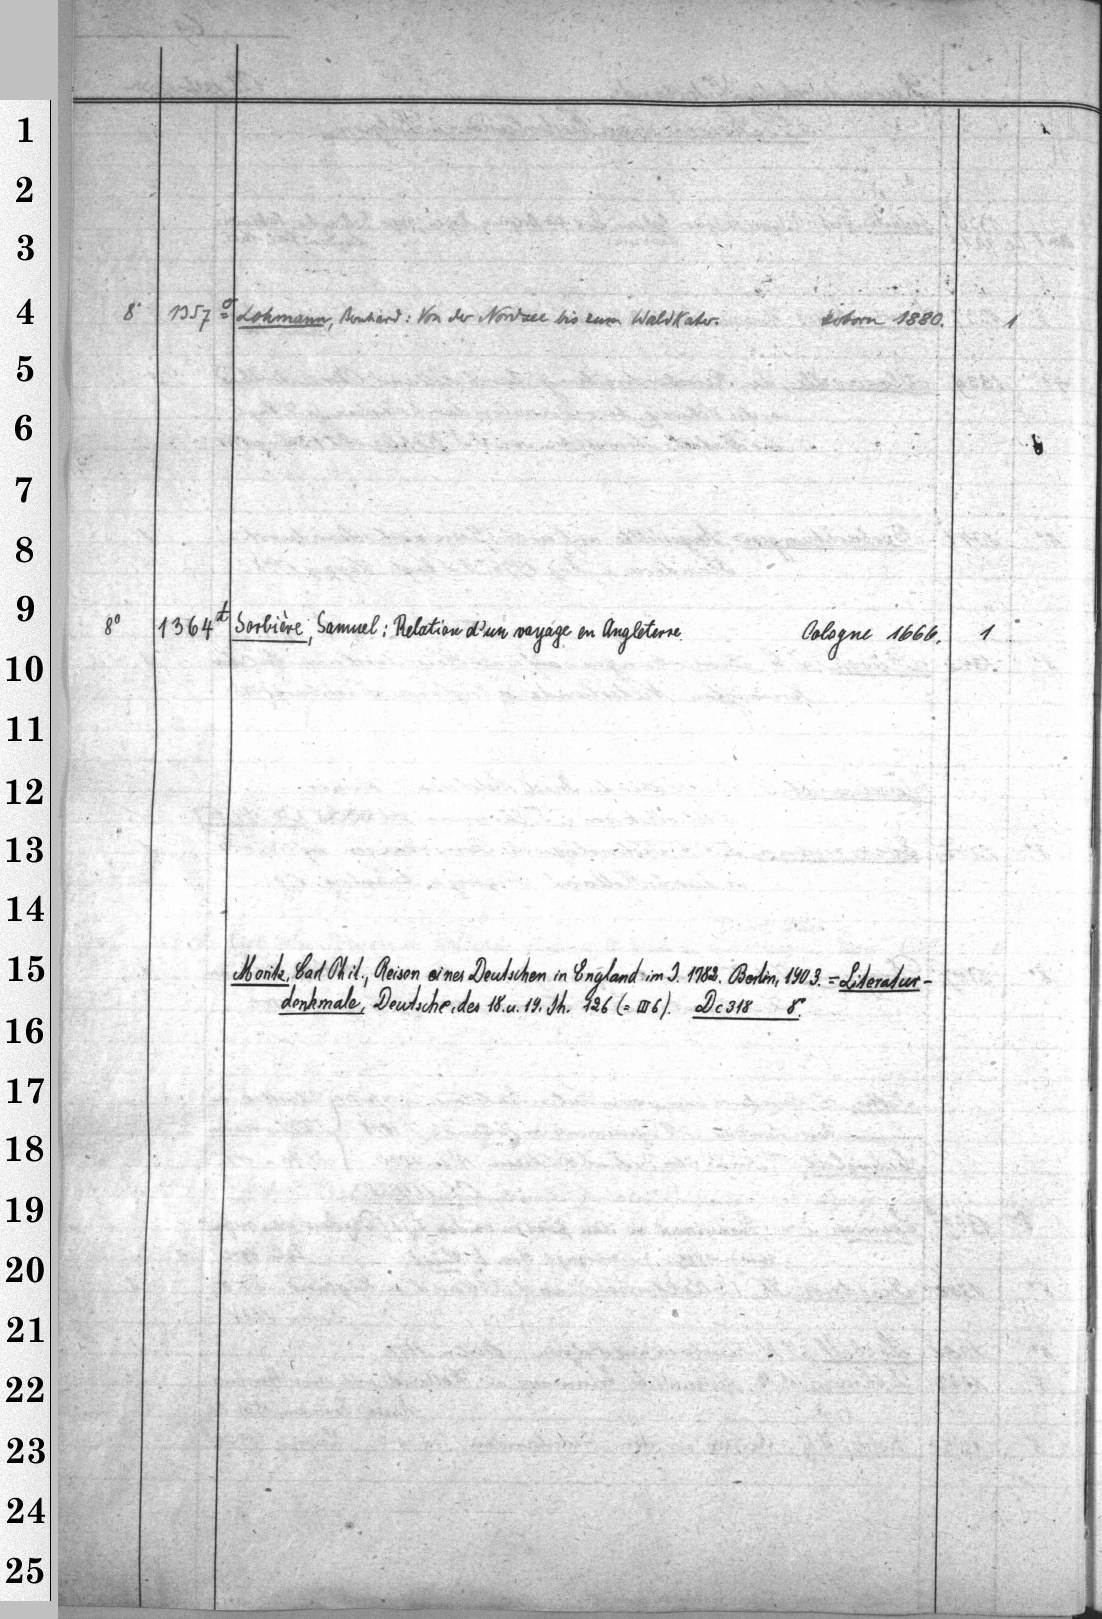 1
2
3
4
8° 1357 Lohmann, : Von der Nordsee bis zum Waldkater. 1880. 1
5
6
7
8
9
8° 1364t Sorbière, Samuel: Relation d'un voyage en Angleterre. Cologne 1666. 1
10
11
12
13
14
15
Moritz, Carl Phil., Reisen eines Deutschen in England im J. 1782. Berlin, 1903. = Literatur-
denkmale, Deutsche, des 18. u. 19. Jh. 126 (= III 6). Dc 318 8°.
16
17
18
19
20
21
22
23
24
25